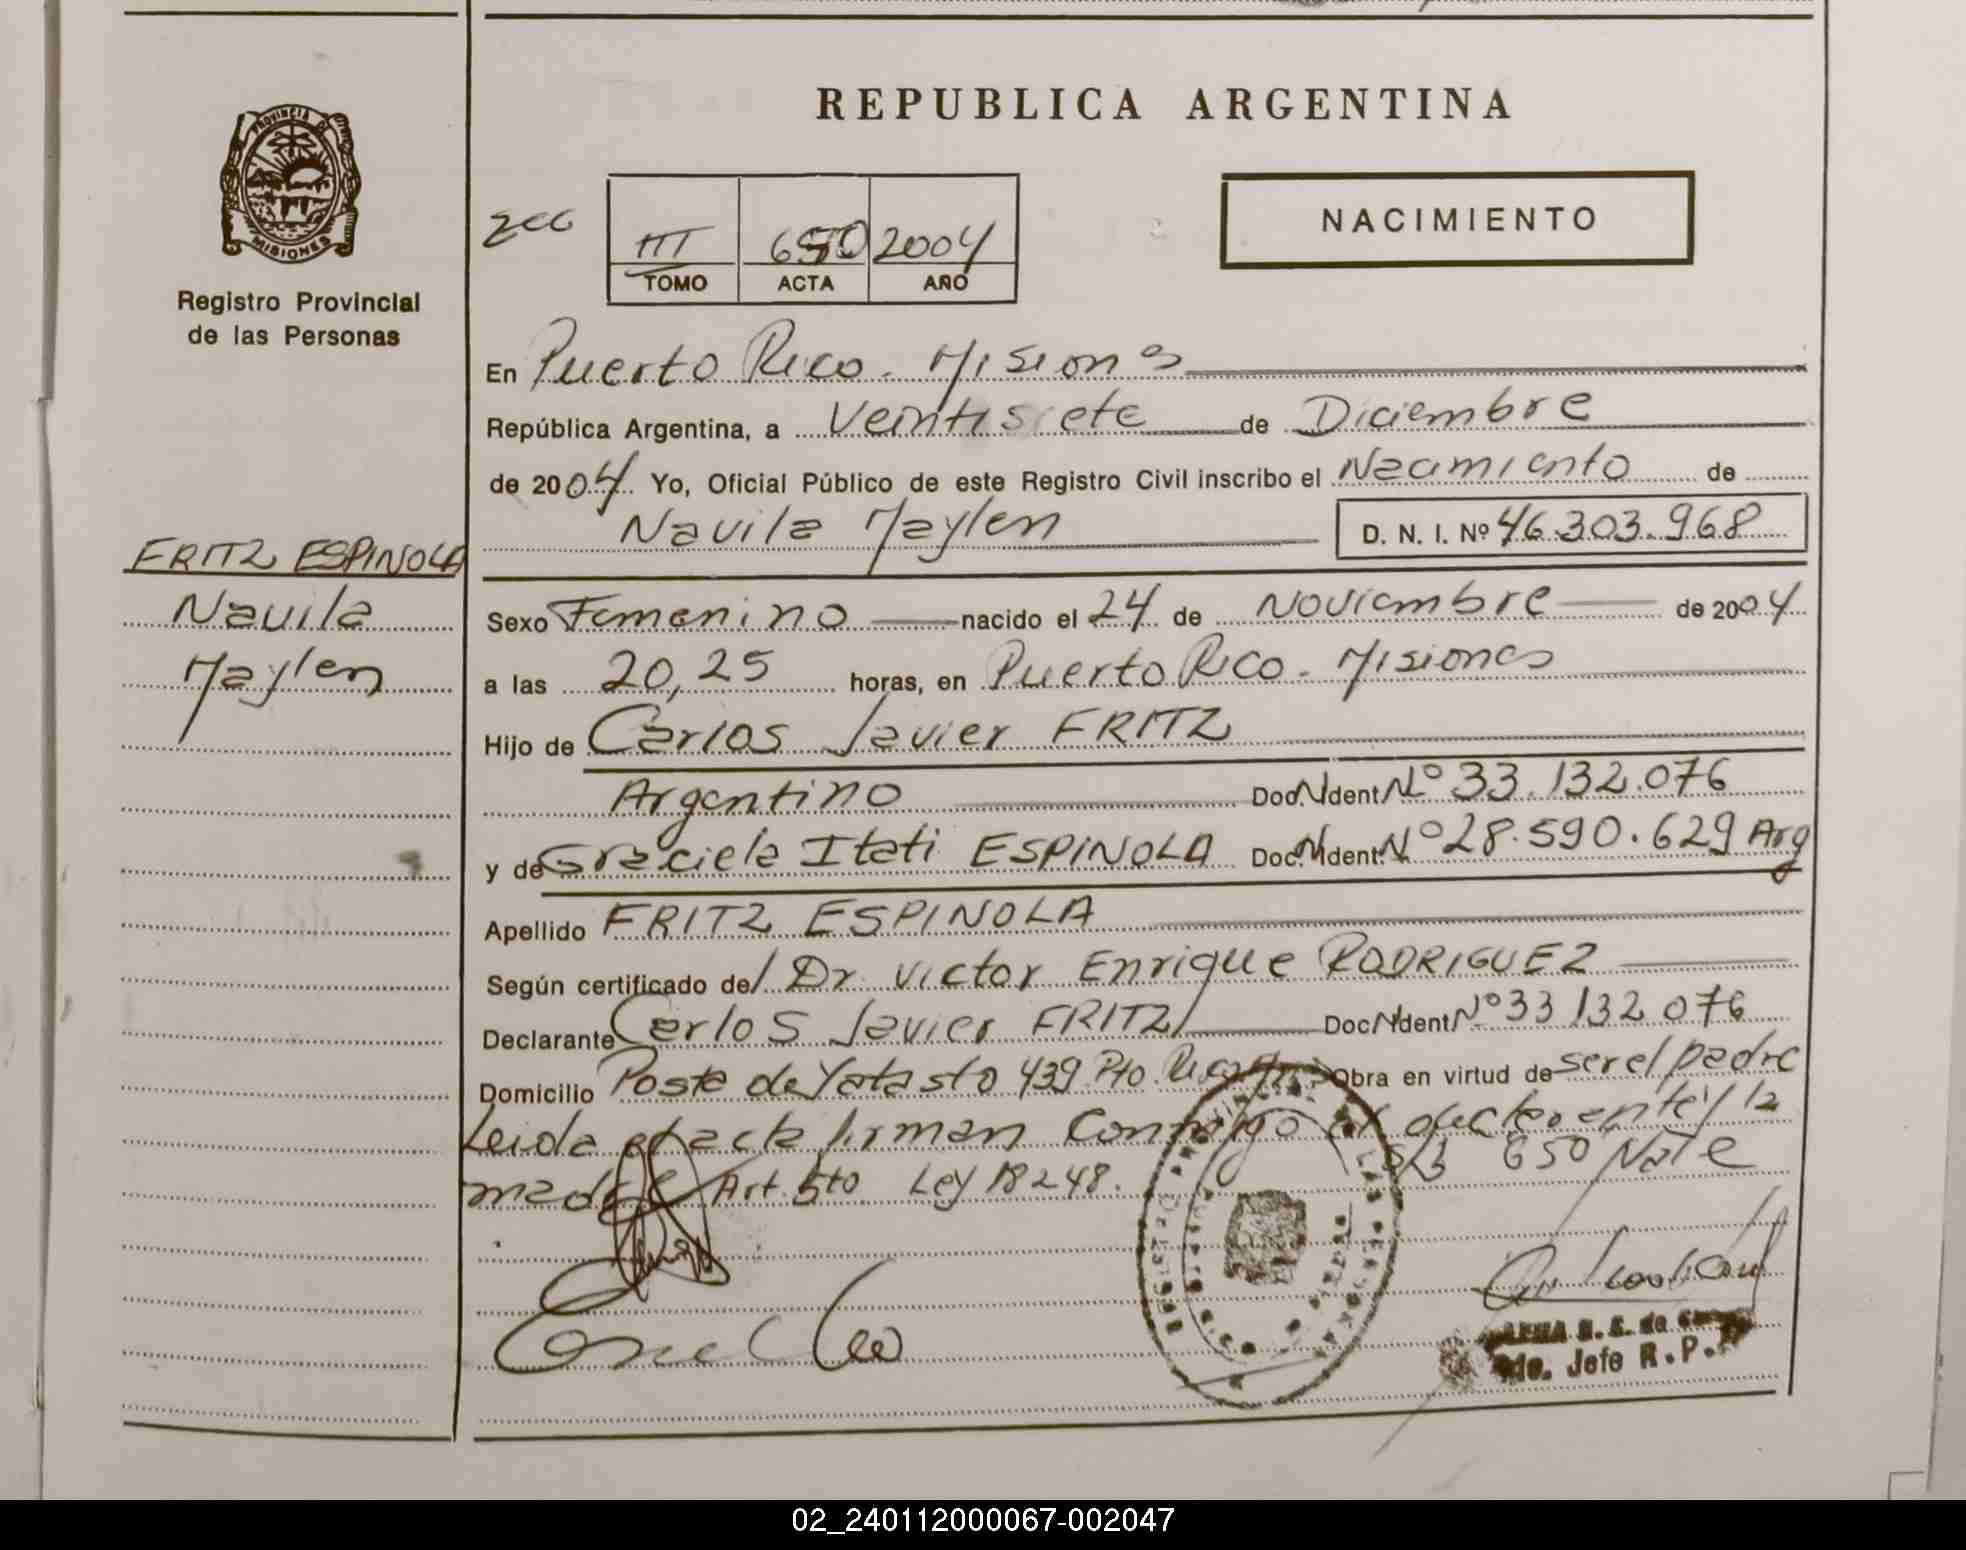 REPUBLICA ARGENTINA
PROVINCIA DE
MISIONES
Registro Provincial
de las Personas
NACIMIENTO
III 650 2004
TOMO ACTA AÑO
En Puerto Rico. Misiones
República Argentina, a Veintisiete de Diciembre
de 2004 Yo, Oficial Público de este Registro Civil inscribo el Nacimiento de
Navila Maylen D. N. I. Nº 46.303.968
FRITZ ESPINOLA
Navila
Maylen
Sexo Femenino nacido el 24 de Noviembre de 2004
a las 20,25 horas, en Puerto Rico. Misiones
Hijo de Carlos Javier FRITZ
Argentino Doc. Ident. Nº 33.132.076
y de Graciela Itati ESPINOLA Doc. Ident. Nº 28.590.629 Arg
Apellido FRITZ ESPINOLA
Según certificado de/ Dr Victor Enrique RODRIGUEZ
Declarante Carlos Javier FRITZ Doc. Ident. Nº 33 132 076
Domicilio Posta de Yatasto 439 Pto. Rico Obra en virtud de ser el padre
Leida el acta firman Conmigo el declarante y la
madre Art. 5to Ley 18248. S/b 650 Vale
Jefe R.P.
02_240112000067-002047